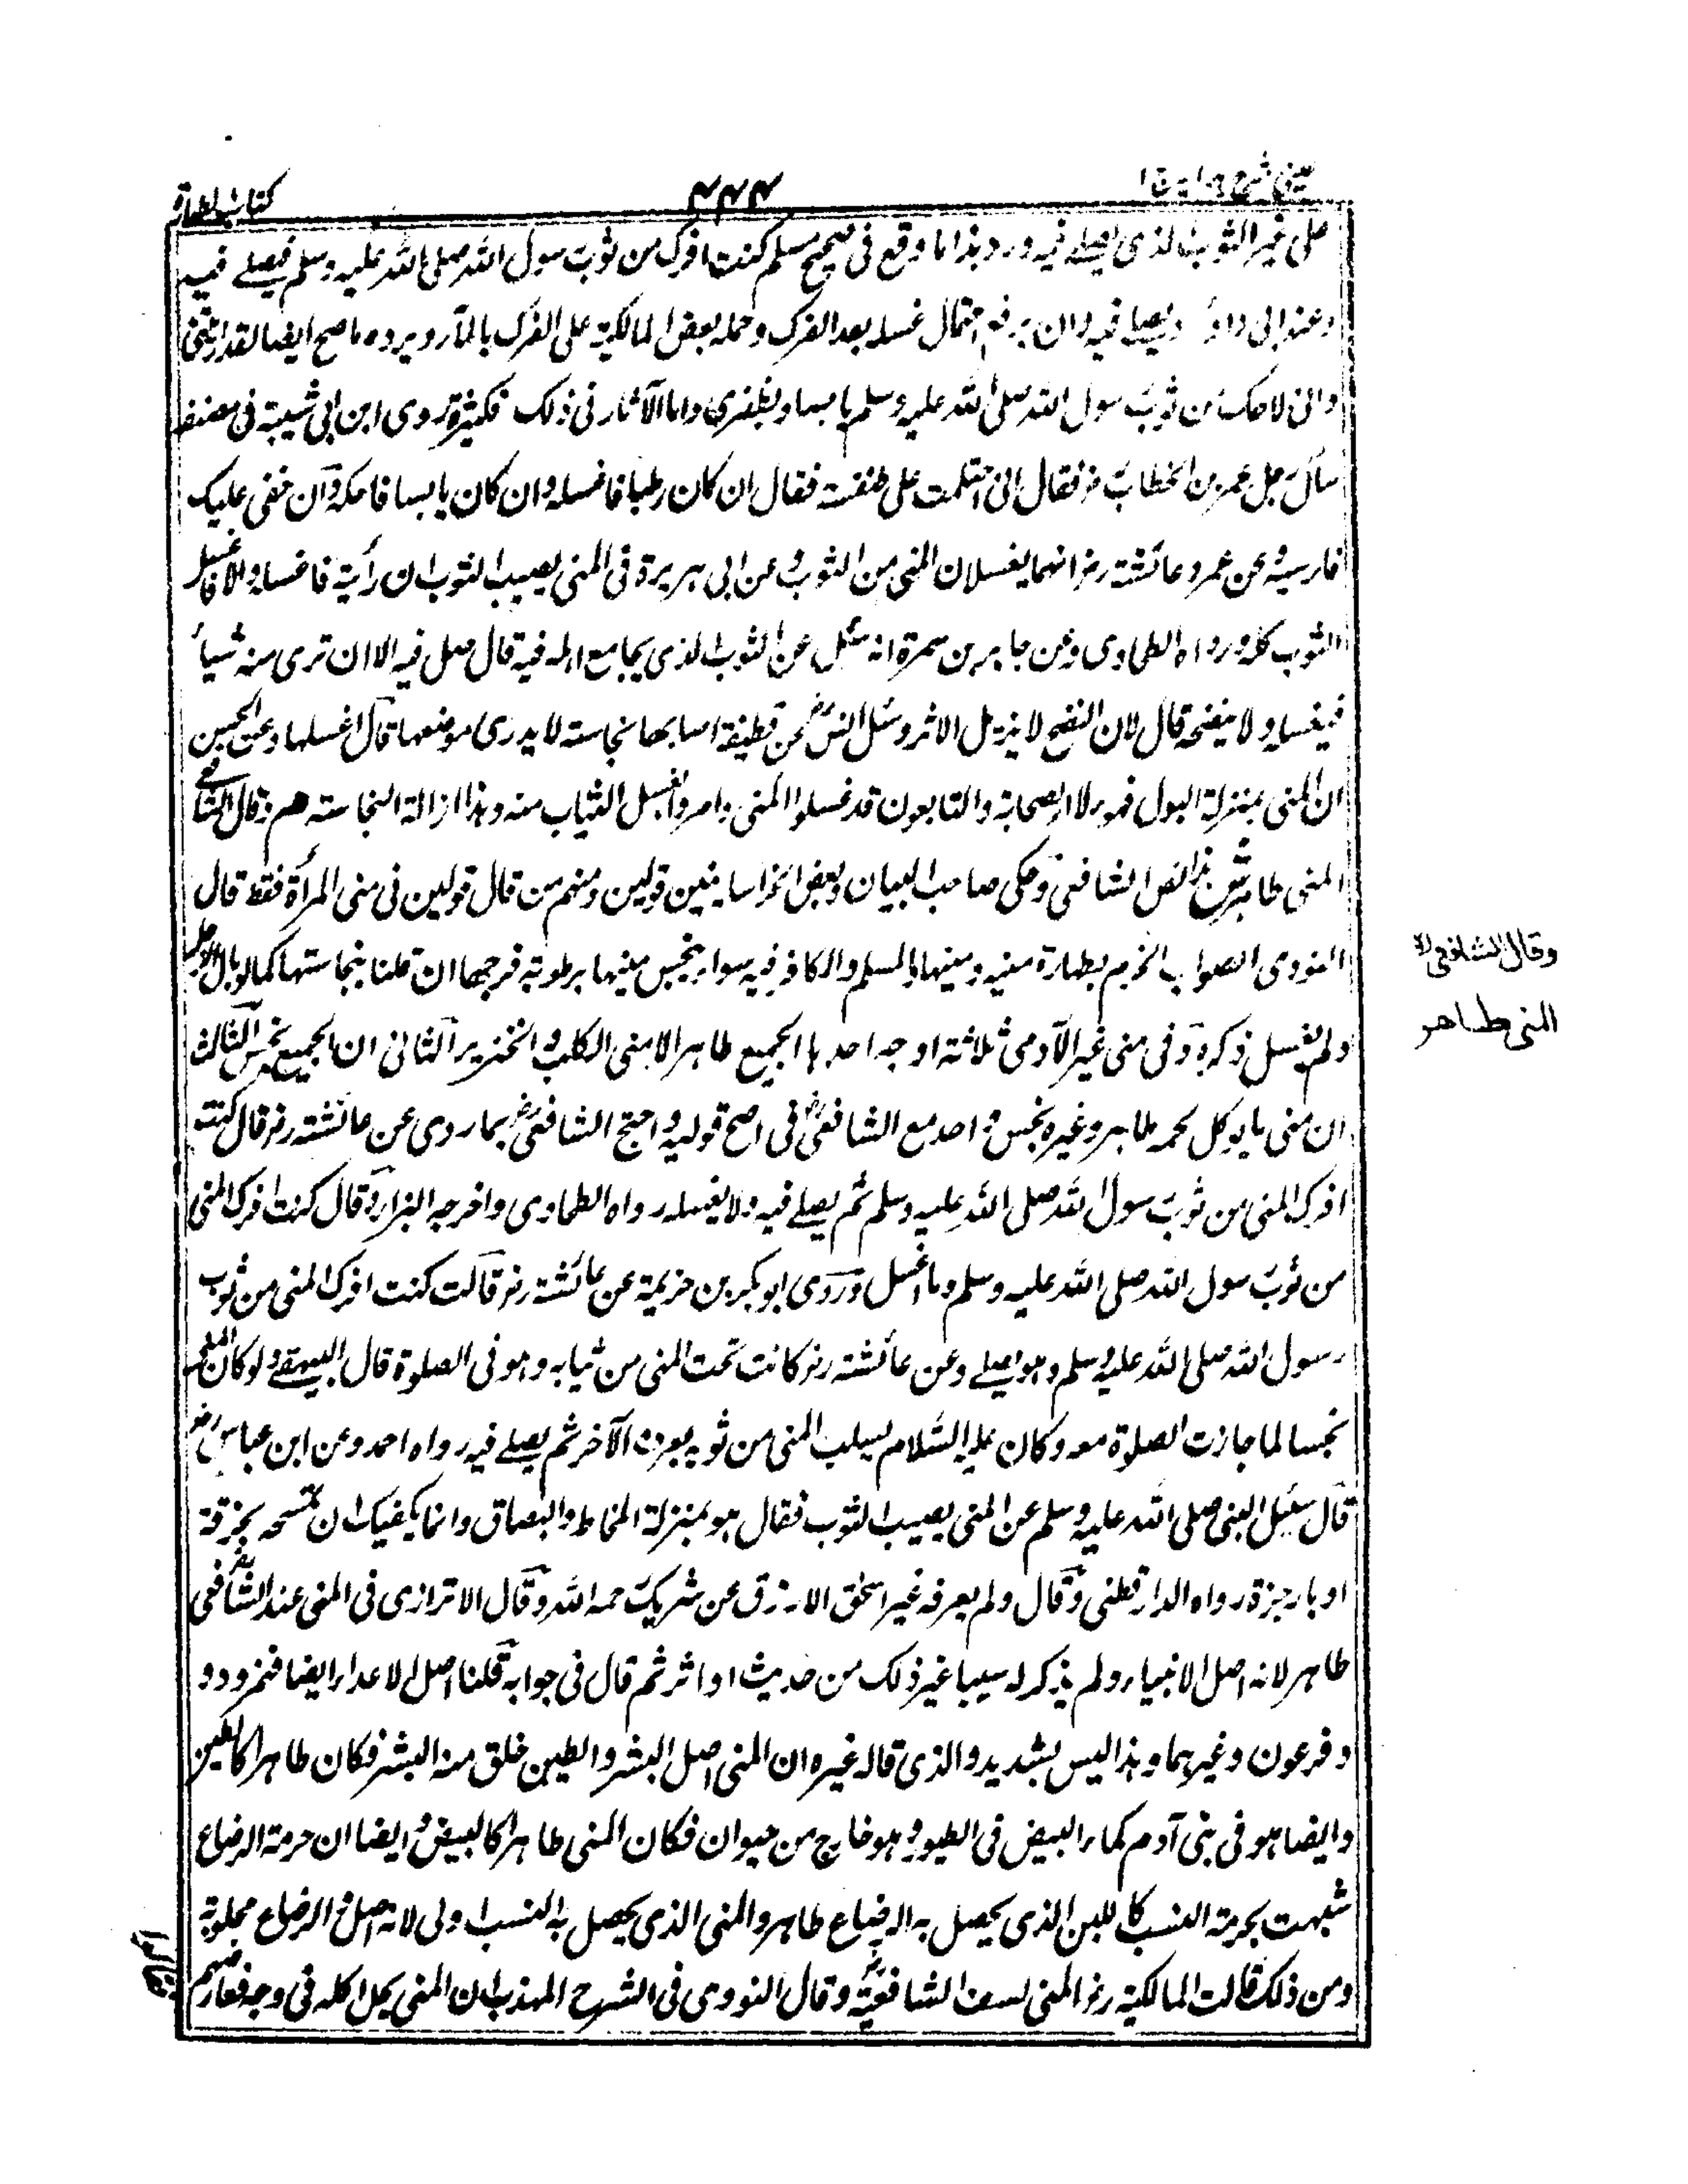 عینی شرح هدایة ج ۱
۴۴۴
کتاب الطهارة
علی غیر الثوب الذی یصلے فیه ورد بذا ما وقع فی صحیح مسلم کنت افرک من ثوب رسول الله صلی الله علیه وسلم فیصلے فیه
وعند ابی داؤد ویصلے فیه وان یرفع احتمال غسله بعد الفرک وحمله بعض المالکیة علی الفرک بالمآء ویرده ما صح ایضا لقد رأیتنی
وانی لاحکه من ثوب رسول الله صلی الله علیه وسلم یابسا وبظفری واما الآثار فی ذلک فکثیرة روی ابن ابی شیبة فی مصنفه
سأل رجل عمر بن الخطاب رض فقال انی احتلمت علی طنفسة فقال ان کان رطبا فاغسله وان کان یابسا فاحکه وان خفی علیک
فارسه وعن عمر وعائشة رض انهما یغسلان المنی من الثوب وعن ابی هریرة فی المنی یصیب الثوب ان رأیته فاغسله والا فاغسل
الثوب کله ورواه الطحاوی وعن جابر بن سمرة انه سئل عن الثوب الذی یجامع اهله فیه قال صل فیه الا ان تری منه شیأ
فیغسله ولا ینضحه قال لان النضح لا یزیل الاثر وسئل انس رض عن قطیفة اصابها نجاسة لا یدری موضعها قال اغسلها وعن الحسن
ان المنی بمنزلة البول فهؤلاء الصحابة والتابعون قد غسلوا المنی وامروا بغسل الثیاب منه وهذا ازالة النجاسة هم وقال الشافعی
المنی طاهر ش هذا نص الشافعی وحکی صاحب البیان وبعض الخراسانیین قولین ومنهم من قال قولین فی منی المرأة فقط قال
النووی الصواب الجزم بطهارة منیه ومنیها المسلم والکافر فیه سواء ینجس منیها برطوبة فرجها ان قلنا بنجاستها کما لو بال الرجل
ولم یغسل ذکره وفی منی غیر الآدمی ثلاثة اوجه احدها الجمیع طاهر الا منی الکلب والخنزیر الثانی ان الجمیع نجس الثالث
ان منی ما یوکل لحمه طاهر وغیره نجس واحمد مع الشافعی رض فی اصح قولیه واحتج الشافعی رض بما روی عن عائشة رض قال کنت
افرک المنی من ثوب رسول الله صلی الله علیه وسلم ثم یصلے فیه ولا یغسله رواه الطحاوی واخرجه البزار وقال کنت افرک المنی
من ثوب رسول الله صلی الله علیه وسلم وما اغسل وروی ابو بکر بن خزیمة عن عائشة رض قالت کنت افرک المنی من ثوب
رسول الله صلی الله علیه وسلم وهو یصلے وعن عائشة رض کانت تحت المنی من ثیابه وهو فی الصلوة قال البیهقی ولو کان المنی
نجسا لما جازت الصلوة معه وکان علیه السلام یسلت المنی من ثوبه بعرق الآخر ثم یصلے فیه رواه احمد وعن ابن عباس رض
قال سئل النبی صلی الله علیه وسلم عن المنی یصیب الثوب فقال هو بمنزلة المخاط والبصاق وانما یکفیک ان تمسحه بخرقة
او باذخرة رواه الدارقطنی وقال ولم یعرفه غیر اسحٰق الازرق عن شریک رحمه الله وقال الاترازی فی المنی عند الشافعی رض
طاهر لانه اصل الانبیاء ولم یذکر له سببا غیر ذلک من حدیث او اثر ثم قال فی جوابه قلنا اصل الاعداء ایضا فنمرود و
وفرعون وغیرهما وهذا لیس بشدید والذی قاله غیره ان المنی اصل البشر والطین خلق منه البشر فکان طاهرا کالطین
وایضا هو فی بنی آدم کماء البیض فی الطیور وهو خارج من حیوان فکان المنی طاهرا کالبیض وایضا ان حرمة الرضاع
شبهت بحرمة النسب کاللبن الذی یحصل به الرضاع طاهر والمنی الذی یحصل به النسب اولی لانه اصل والرضاع
ومن ذلک قالت المالکیة رض المنی الشافعیة رض وقال النووی فی الشرح المهذب ان المنی یحل اکله فی وجه
وقال الشافعی رح
المنی طاهر